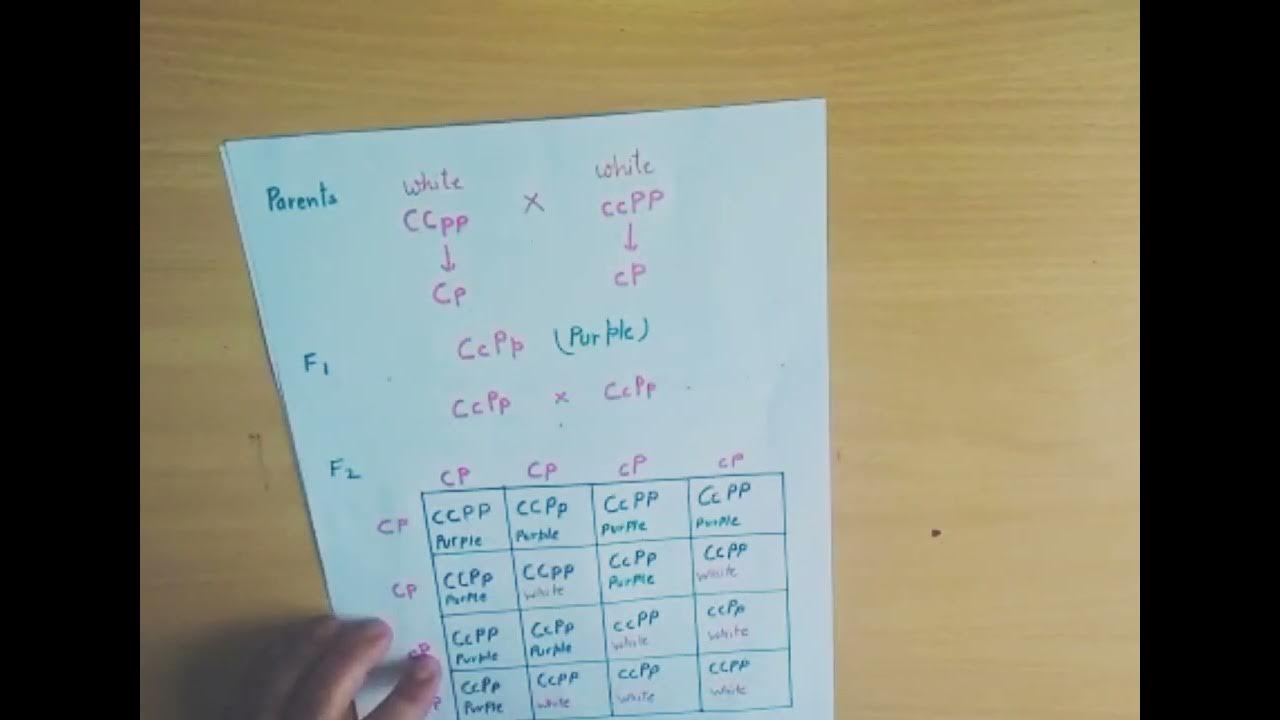 white white
Parents CCpp × ccPP
↓ ↓
Cp cP
F1 CcPp (Purple)
CcPp × CcPp
F2 CP Cp cP cp
CP CCPP CCPp CcPP CcPP
Purple Purple Purple Purple
Cp CCPp CCpp CcPp Ccpp
Purple white Purple white
cP CcPP CcPp ccPP ccPp
Purple Purple white white
p CcPp Ccpp ccPp ccpp
Purple white white white